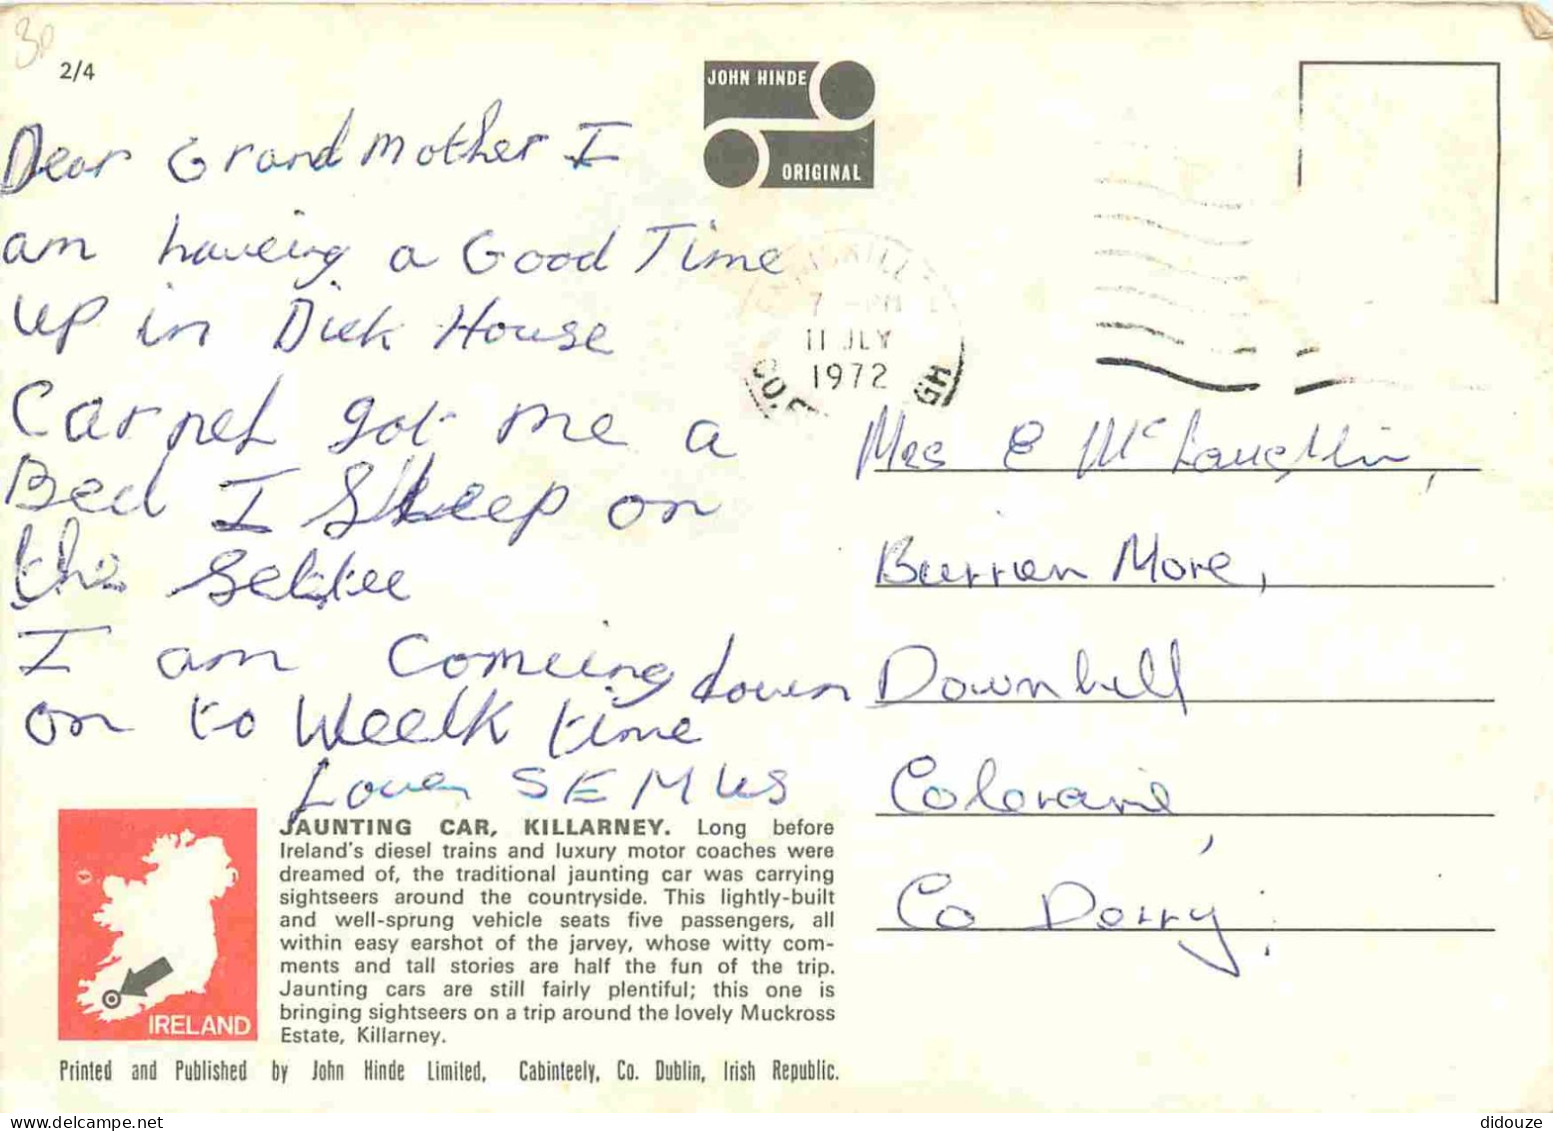 3p
2/4
JOHN HINDE
ORIGINAL
Dear Grand mother I
am haveing a Good Time
up in Dick House
Carnel got me a
Bed I Sleep on
the Settee
I am Comeing down
on to Weelk time
Love SEMUS
7 - PM
11 JLY
1972
CO.
GH
Mrs E McLaughlin,
Burrien More,
Downhill
Coleraine,
Co Derry.
JAUNTING CAR, KILLARNEY. Long before
Ireland's diesel trains and luxury motor coaches were
dreamed of, the traditional jaunting car was carrying
sightseers around the countryside. This lightly-built
and well-sprung vehicle seats five passengers, all
within easy earshot of the jarvey, whose witty com-
ments and tall stories are half the fun of the trip.
Jaunting cars are still fairly plentiful; this one is
bringing sightseers on a trip around the lovely Muckross
Estate, Killarney.
IRELAND
Printed and Published by John Hinde Limited, Cabinteely, Co. Dublin, Irish Republic.
didouze